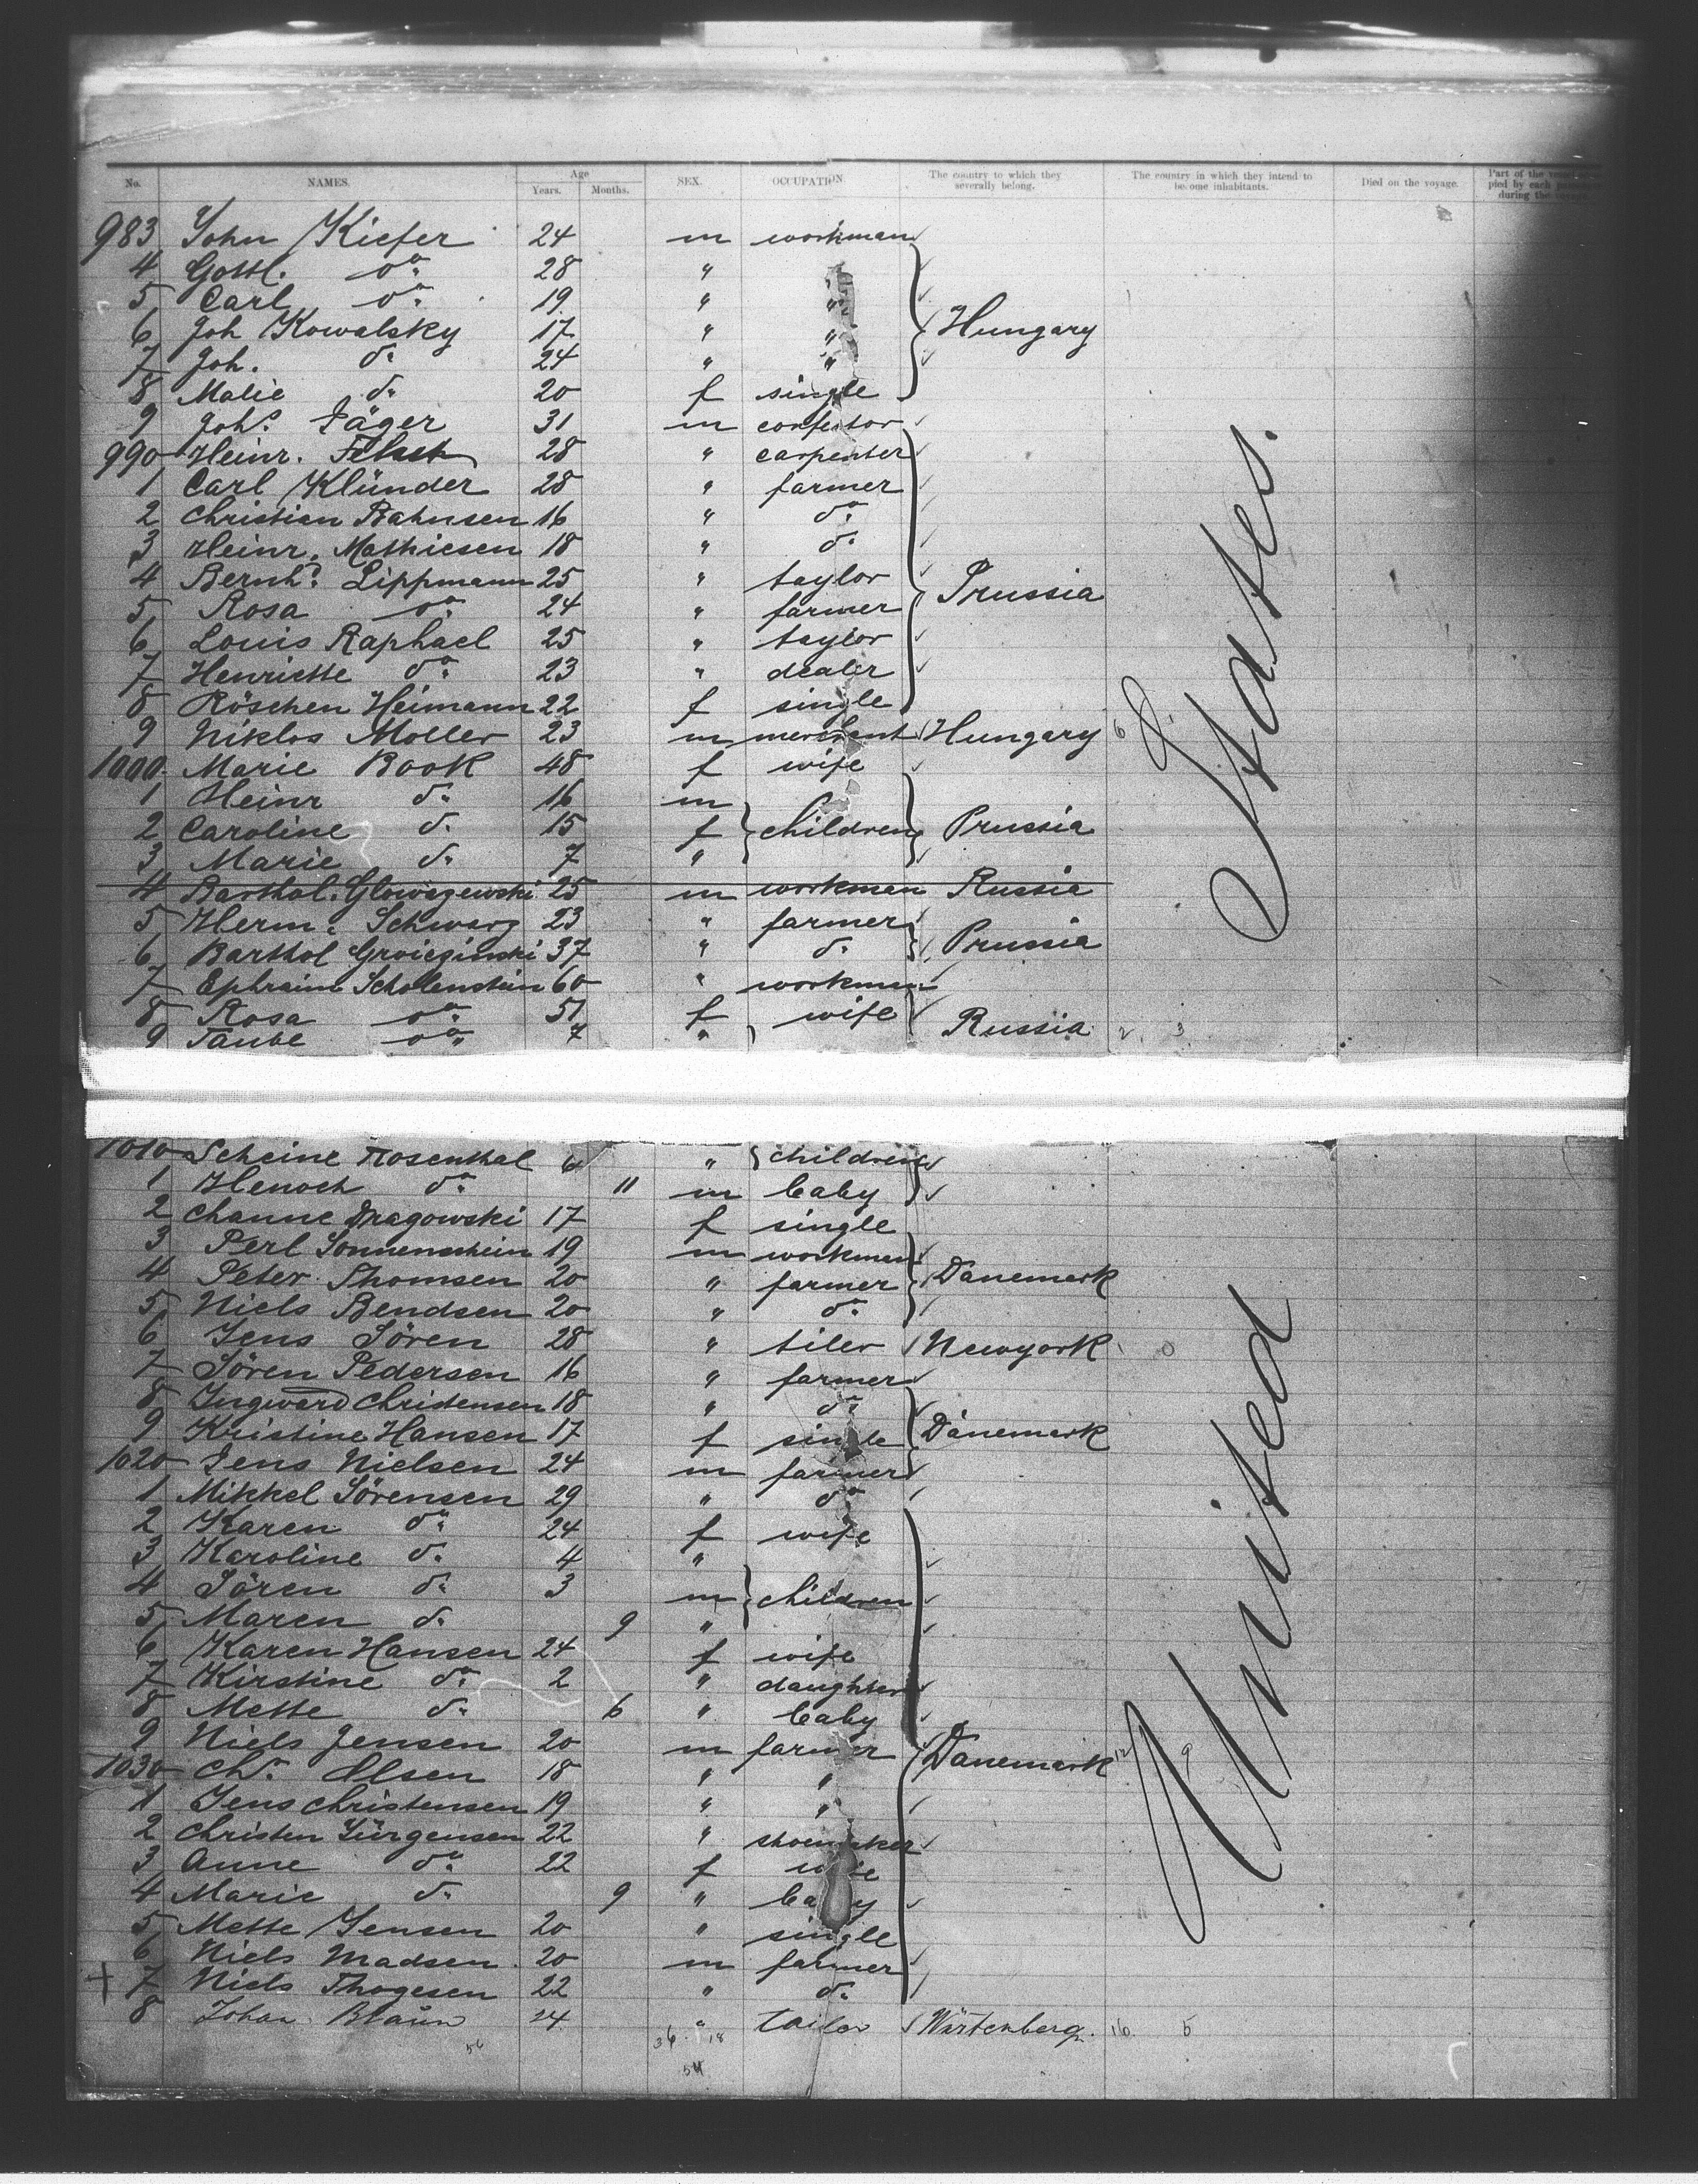 No. NAMES. Age Years. Months. SEX. OCCUPATION. The country to which they severally belong. The country in which they intend to become inhabitants. Died on the voyage. Part of the vessel occupied by each passenger during the voyage.
983 John Kiefer 24 m workman
4 Gottl. do. 28 " "
5 Carl do. 19 " "
6 Joh Kowalsky 17 " " Hungary
7 Joh. do. 24 " "
8 Malie do. 20 f single
9 Johs. Jäger 31 m confector
990 Heinr. 28 " carpenter
1 Carl Klünder 28 " farmer
2 Christian Bahnsen 16 " do.
3 Heinr. Mathiesen 18 " do.
4 Bernhd. Lippmann 25 " taylor Prussia
5 Rosa do. 24 " farmer
6 Louis Raphael 25 " taylor
7 Henriette do. 23 " dealer
8 Röschen Heimann 22 f single
9 Niklos Moller 23 m merchant Hungary 6
1000 Marie Book 48 f wife
1 Heinr do. 16 m
2 Caroline do. 15 f children Prussia
3 Marie do. 7 "
4 Barthol. Glowszewski 25 m workman Russia
5 Herm. Schwarz 23 " farmer
6 Barthol 37 " do. Prussia
7 Ephraim Scholenstein 60 " workman
8 Rosa do. 51 f wife
9 Taube do. 7 " Russia 2 3
States.
1010 Scheine Rosenthal " children
1 Henoch do. 11 m baby
2 Channe Dragowski 17 f single
3 Perl Sonnenschein 19 m workman
4 Peter Thomsen 20 " farmer Danemark
5 Niels Bendsen 20 " do.
6 Jens Sören 28 " tiler Newyork 0
7 Sören Pedersen 16 " farmer
8 Ingward Christensen 18 " do.
9 Kristine Hansen 17 f single Dänemark
1020 Jens Nielsen 24 m farmer
1 Mikkel Sörensen 29 " do.
2 Karen do. 24 f wife
3 Karoline do. 4 "
4 Sören do. 3 m children
5 Maren do. 9 "
6 Karen Hansen 24 f wife
7 Kirstine do. 2 " daughter
8 Mette do. 6 " baby
9 Niels Jensen 20 m farmer Danemark 12 9
1030 Chr. Olsen 18 " "
1 Jens Christensen 19 " "
2 Christen Jürgensen 22 " shoemaker
3 Anne do. 22 f wife
4 Marie do. 9 " baby
5 Mette Jensen 20 " single
6 Niels Madsen 20 m farmer
+ 7 Niels Thogesen 22 " do.
8 Johan Braun 24 " tailor Würtenberg. 16 5
56 36 18
54
United